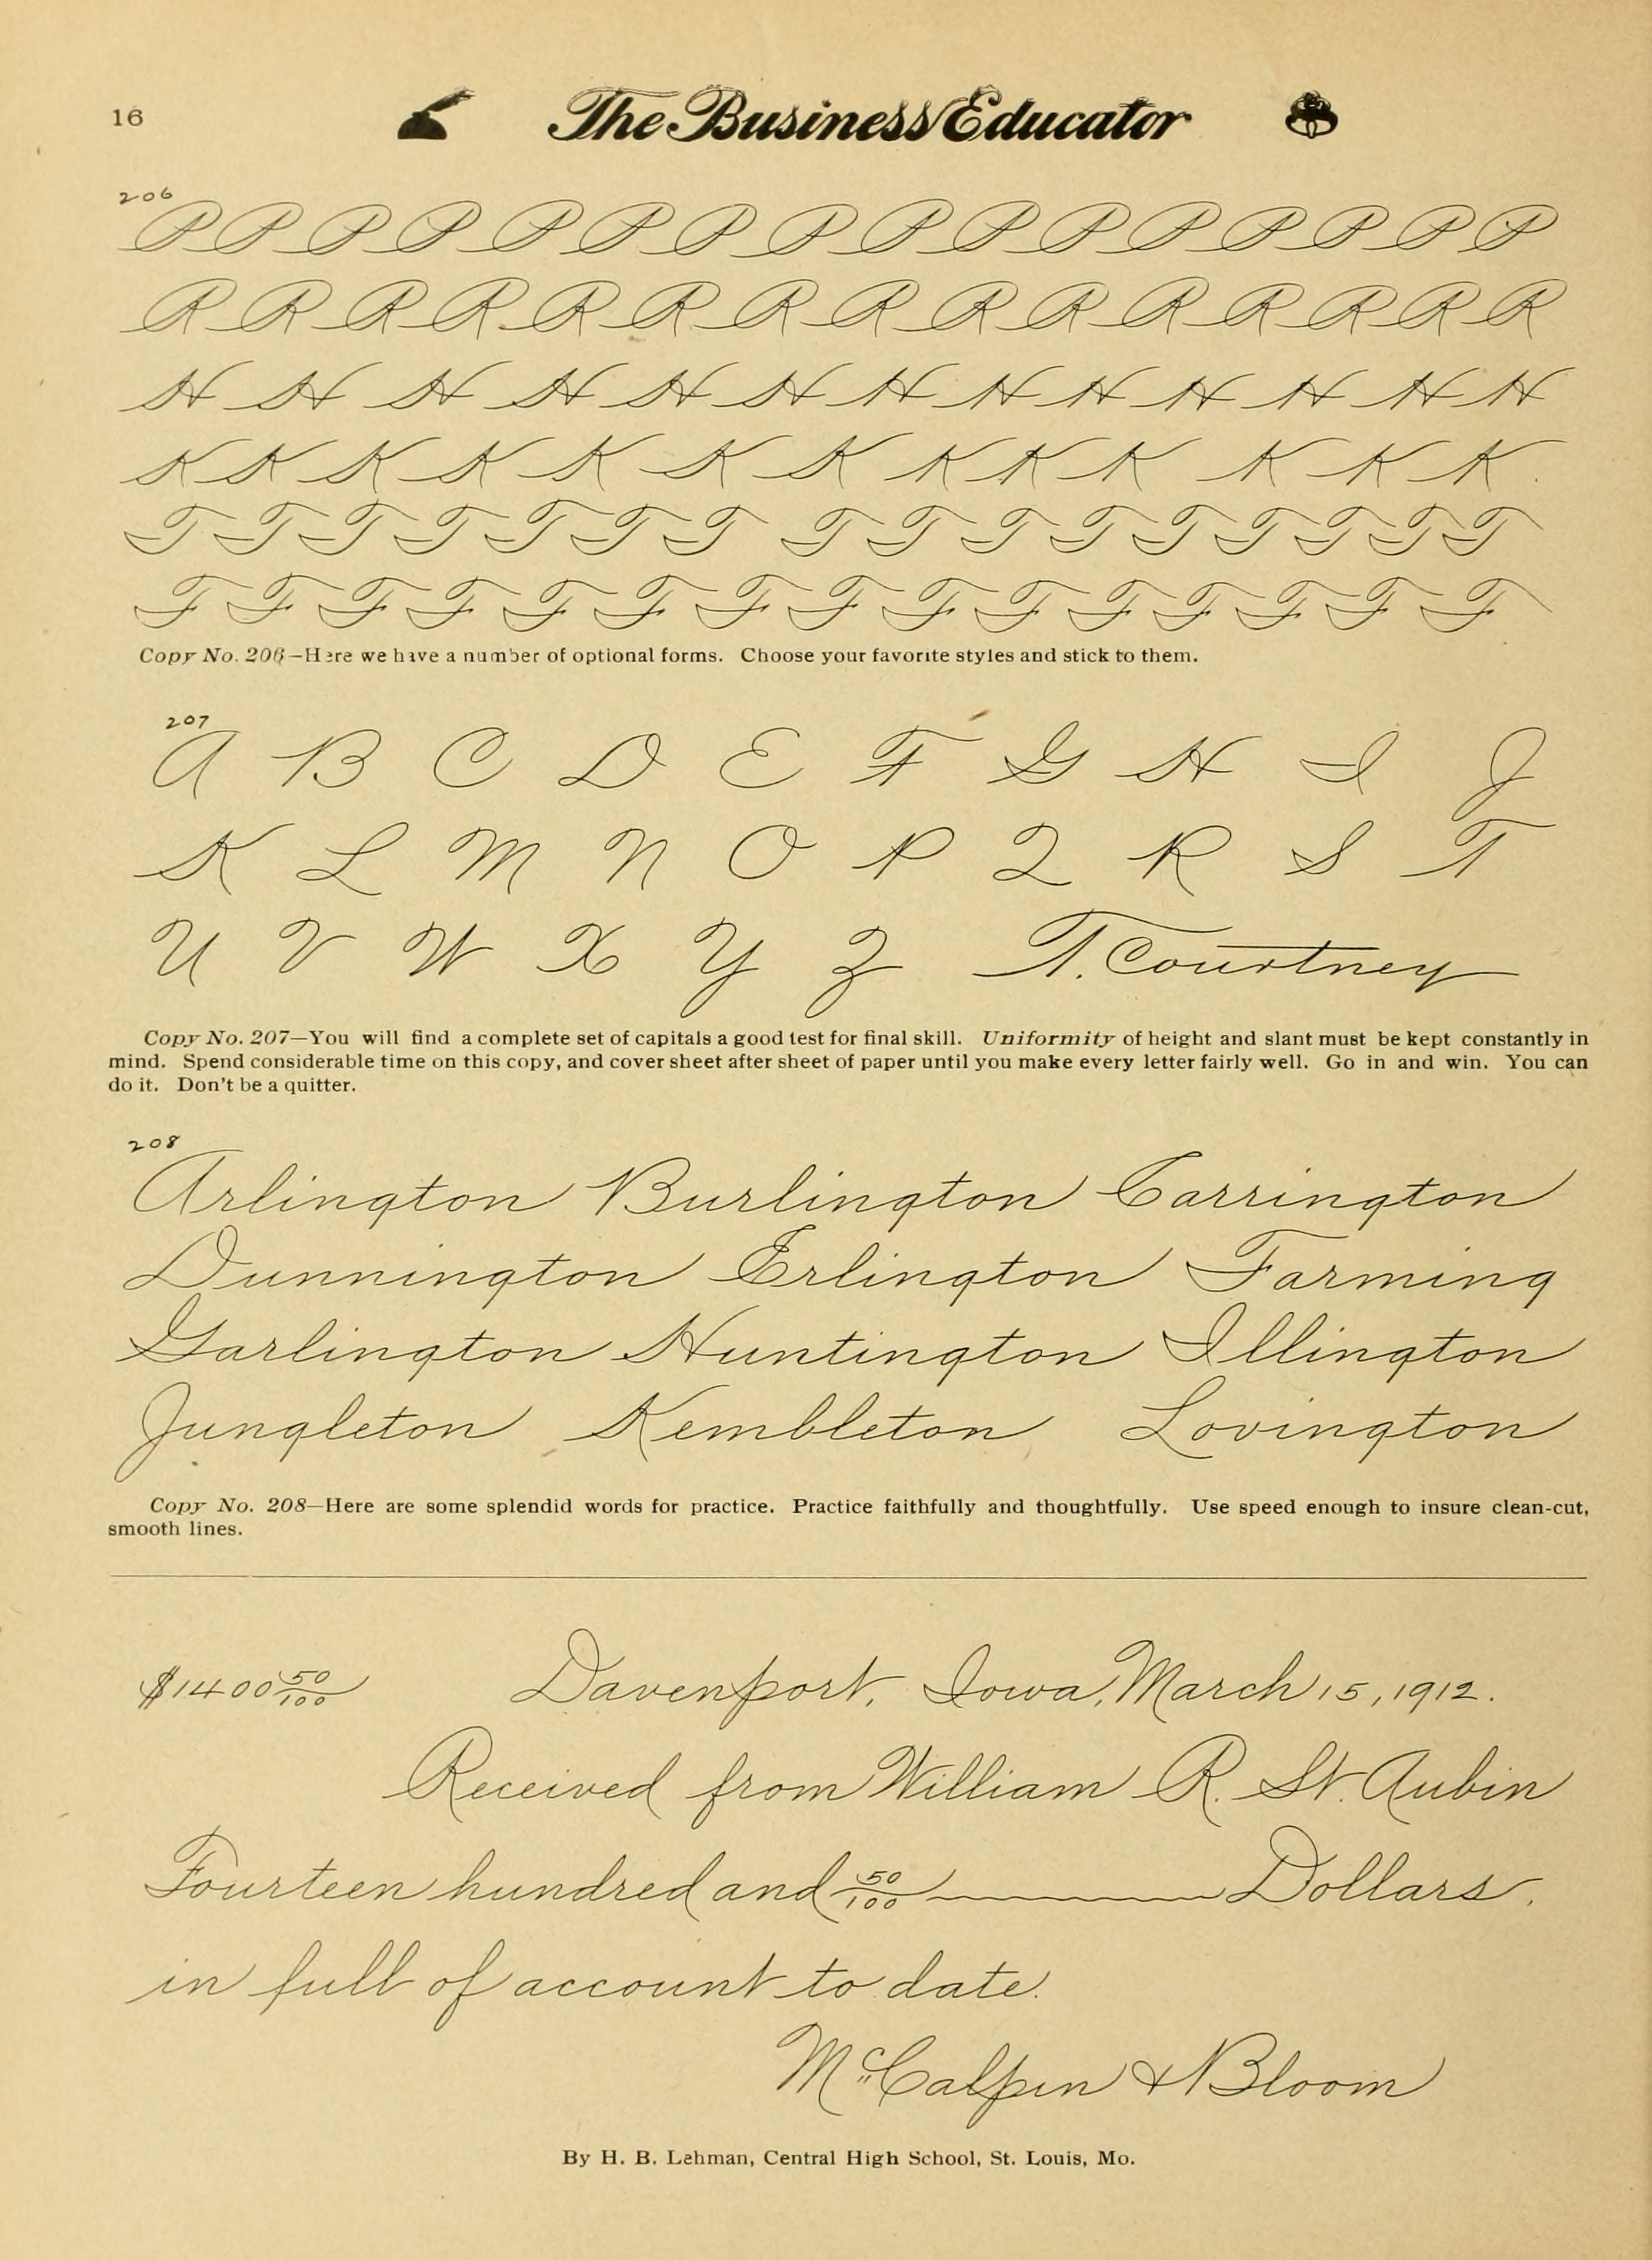 16
The Business Educator
206
P P P P P P P P P P P P P P P P
R R R R R R R R R R R R R R R
H H H H H H H H H H H H H
K K K K K K K K K K K K K
T T T T T T T T T T T T T T T T
F F F F F F F F F F F F F F F
Copy No. 206—Here we have a number of optional forms. Choose your favorite styles and stick to them.
207
A B C D E F G H I J
K L M N O P Q R S T
U V W X Y Z T. Courtney
Copy No. 207—You will find a complete set of capitals a good test for final skill. Uniformity of height and slant must be kept constantly in
mind. Spend considerable time on this copy, and cover sheet after sheet of paper until you make every letter fairly well. Go in and win. You can
do it. Don't be a quitter.
208
Arlington Burlington Carrington
Dunnington Erlington Farming
Garlington Huntington Illington
Jungleton Kembleton Lovington
Copy No. 208—Here are some splendid words for practice. Practice faithfully and thoughtfully. Use speed enough to insure clean-cut,
smooth lines.
$1400 50/100 Davenport, Iowa, March 15, 1912.
Received from William R. St. Aubin
Fourteen hundred and 50/100 Dollars.
in full of account to date.
McCalpin & Bloom
By H. B. Lehman, Central High School, St. Louis, Mo.